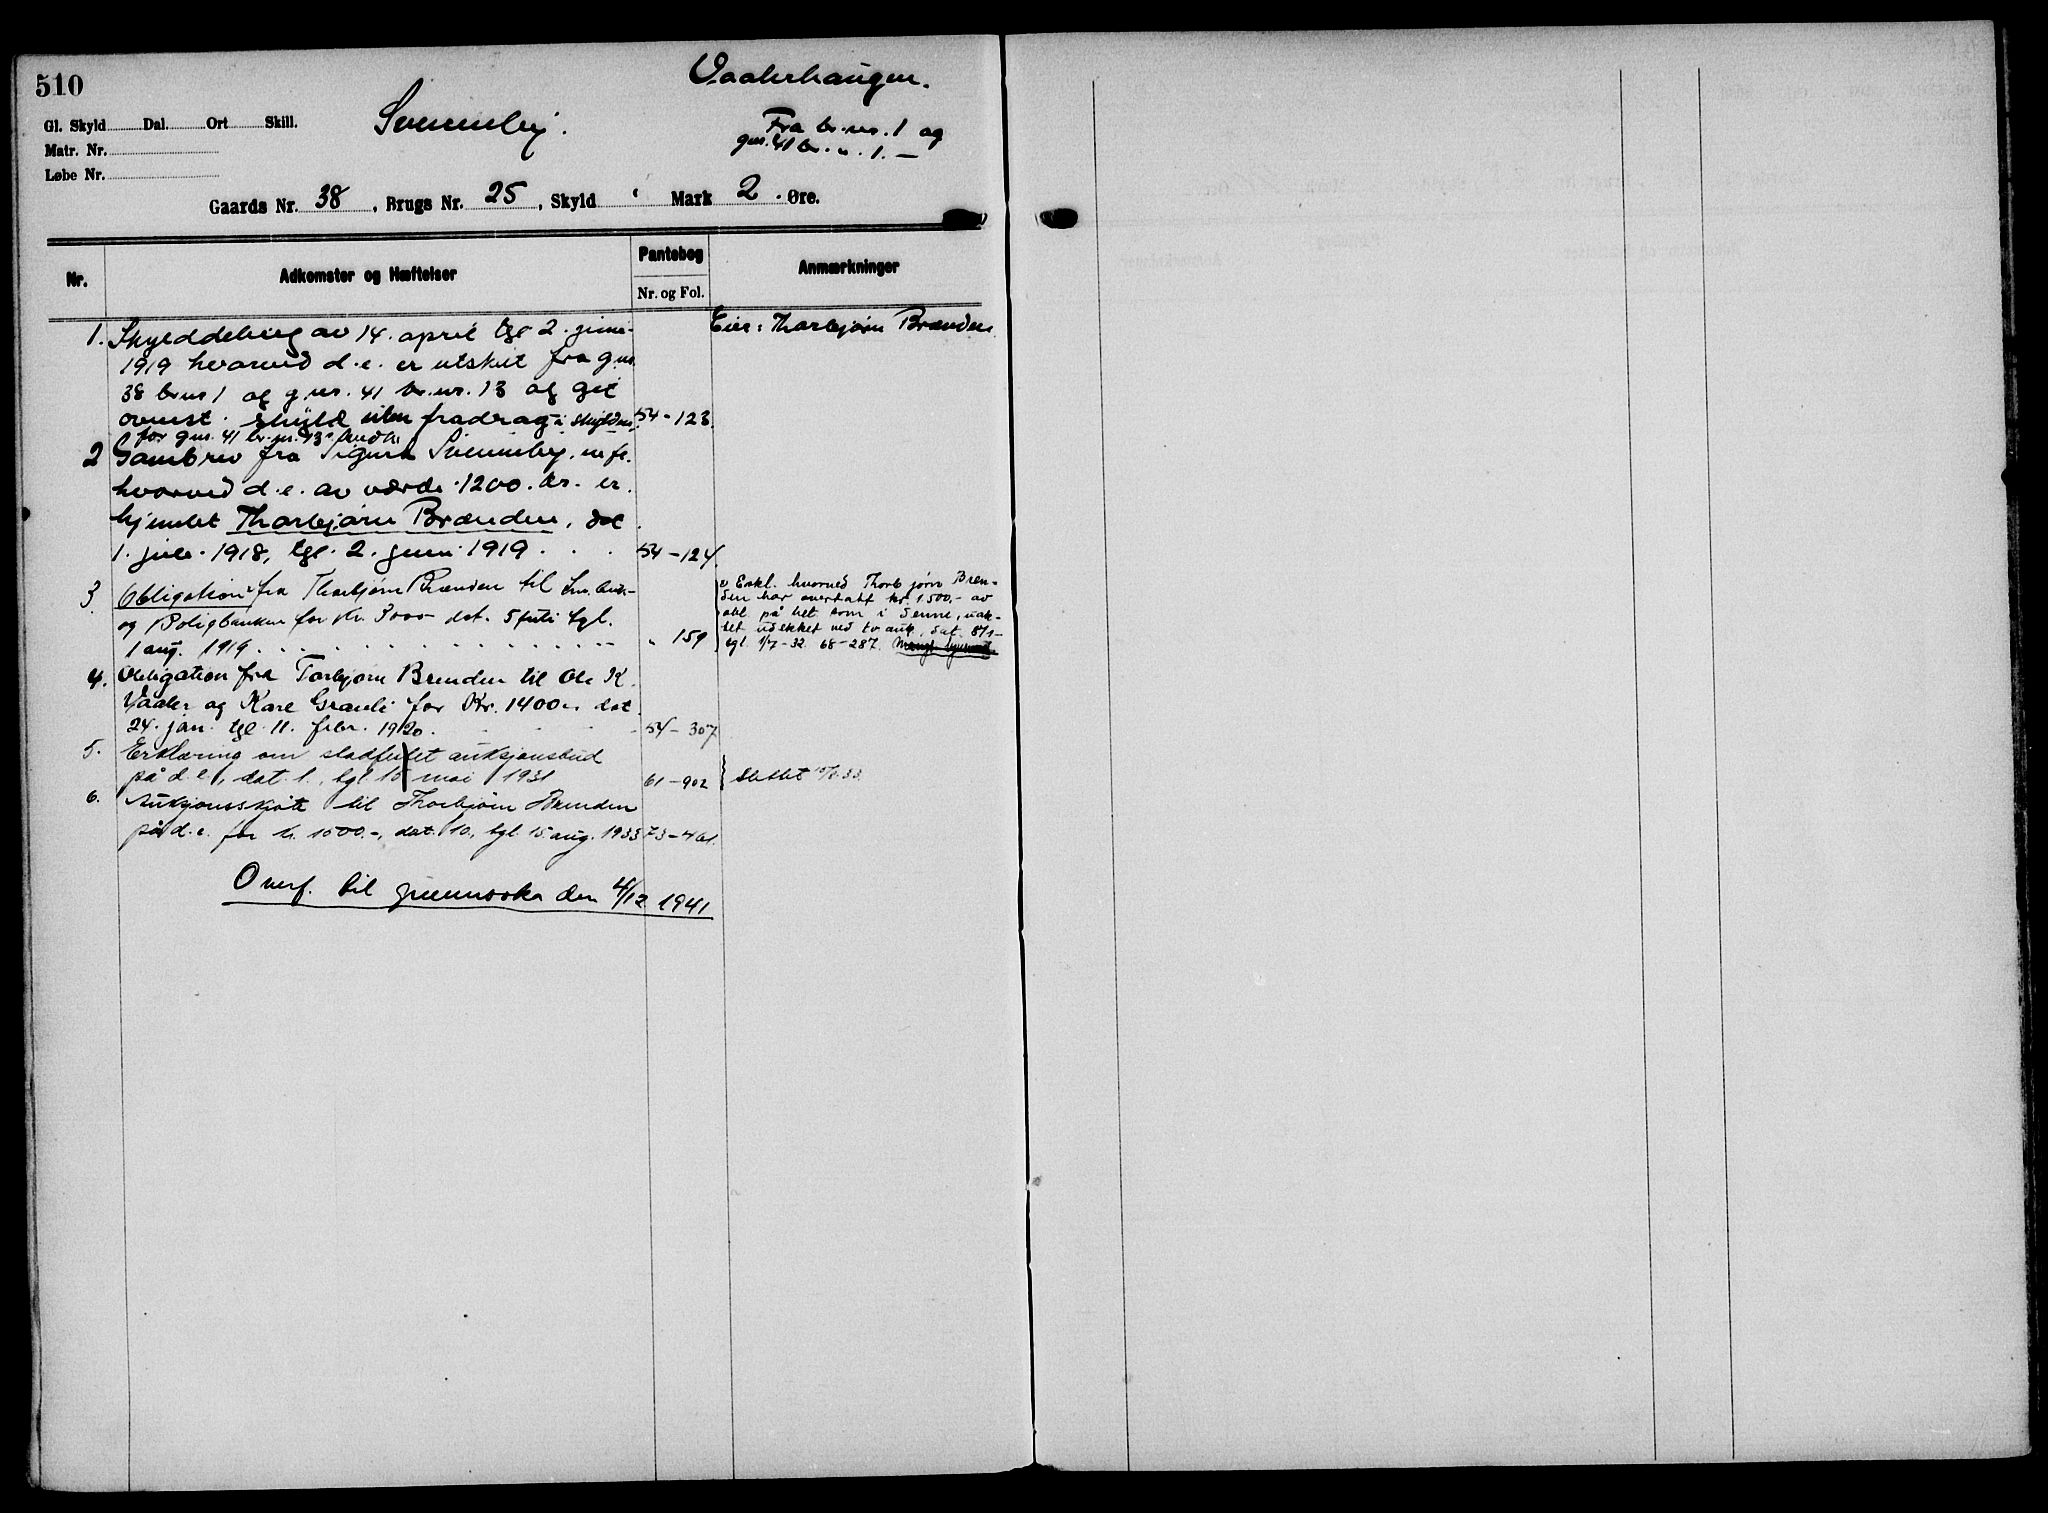 510
Vaalerhaugen.
Gl. Skyld Dal. Ort Skill.
Svenneby.
Fra br.nr. 1 og
Matr. Nr.
gnr. 41 br. " 1. —
Løbe Nr.
Gaards Nr. 38, Brugs Nr. 25, Skyld Mark 2. Øre.
Nr. Adkomster og Hæftelser Pantebog Anmærkninger
Nr. og Fol.
1. Skylddeling av 14. april tgl 2. juni Eier: Thorbjørn Brænden
1919 hvorved d.e. er utskilt fra gnr.
38 brnr 1 og gnr. 41 br.nr. 13 og git
ovenst. skyld uten fradrag i skylden 54-123.
for gnr. 41 br.nr. 13
2 Gavebrev fra Sigurd Svenneby
hvorved d.e. av værdi 1200. kr. er
hjemlet Thorbjørn Brænden, dat
1. juli 1918, tgl. 2. juni 1919 . . . 54-124
3 Obligation fra Thorbjørn Brænden til
og Boligbanken for kr. 3000 dat. 5 juli tgl.
1 aug. 1919 . . . " 159
Erkl. hvorved Thorbjørn Bren-
den har overtatt kr. 1.500,- av
obl på helt som i denne, uak-
tet udekket ved tv.auk., dat. 8/1-
tgl. 1/7-32 68-287.
4. Obligation fra Torbjørn Brenden til Ole K.
Vaaler og Kare Granli for Kr. 1400 dat
24. jan. tgl. 11. febr. 1920. 54-307
5. Erklæring om stadfestet auksjonsbud
på d.e., dat. 1., tgl. 10 mai 1931 61-902 slettet
6. Auksjonsskjøte til Thorbjørn Brenden
på d.e. for kr. 1500.-, dat. 10., tgl. 15. aug. 1933 73-461.
Overf. til grunnboka den 4/12 1941